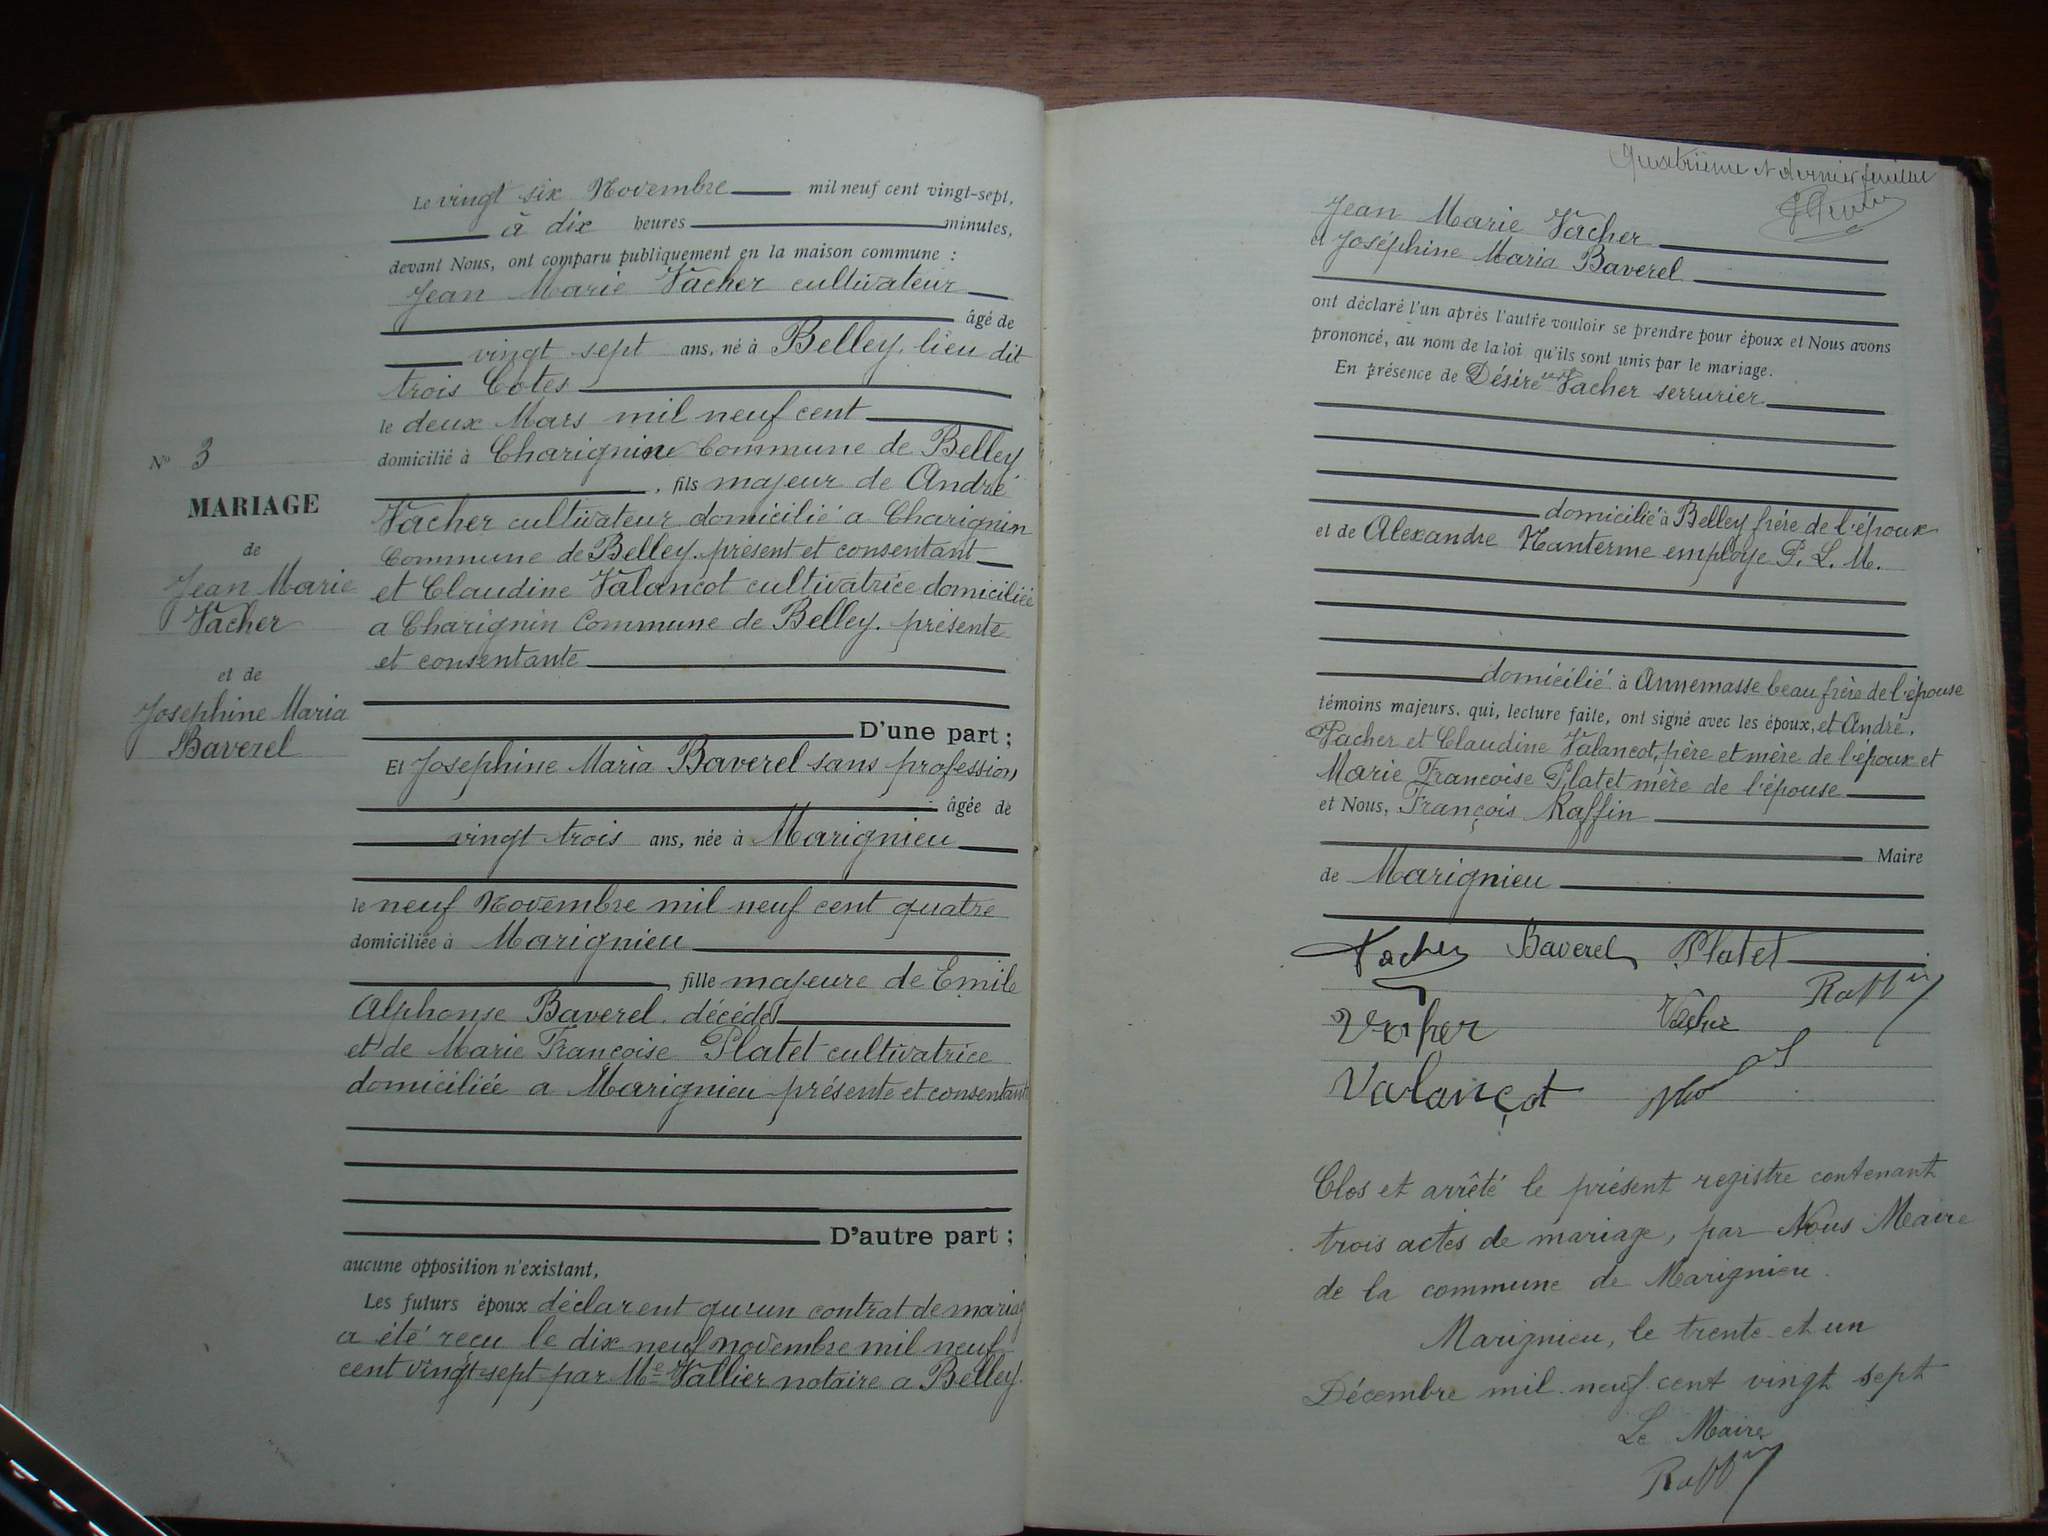 N° 3
MARIAGE
de
Jean Marie
Vacher
et de
Josephine Maria
Baverel
Le vingt six Novembre mil neuf cent vingt-sept,
à dix heures minutes,
devant Nous, ont comparu publiquement en la maison commune :
Jean Marie Vacher cultivateur
âgé de
vingt sept ans, né à Belley, lieu dit
trois Côtes
le deux Mars mil neuf cent
domicilié à Charignin Commune de Belley
, fils majeur de André
Vacher cultivateur domicilié a Charignin
Commune de Belley. présent et consentant
et Claudine Valancot cultivatrice domiciliée
a Charignin Commune de Belley. présente
et consentante
D'une part ;
Et Josephine Maria Baverel sans profession
âgée de
vingt trois ans, née à Marignieu
le neuf Novembre mil neuf cent quatre
domiciliée à Marignieu
, fille majeure de Emile
Alphonse Baverel. décédé
et de Marie Françoise Platet cultivatrice
domiciliée a Marignieu présente et consentante
D'autre part ;
aucune opposition n'existant,
Les futurs époux déclarent qu'un contrat de mariag
a été reçu le dix neuf novembre mil neuf
cent vingt sept par Me Vallier notaire a Belley.
Quatrième et dernier feuillet
Jean Marie Vacher
et Joséphine Maria Baverel
ont déclaré l'un après l'autre vouloir se prendre pour époux et Nous avons
prononcé, au nom de la loi qu'ils sont unis par le mariage.
En présence de Désiré Vacher serrurier
domicilié à Belley frère de l'époux
et de Alexandre Nanterme employe P. L. M.
domicilié à Annemasse beau frère de l'épouse
témoins majeurs, qui, lecture faite, ont signé avec les époux, et André.
Vacher et Claudine Valancot, père et mère de l'époux et
Marie Francoise Platet mère de l'épouse
et Nous, François Raffin
Maire
de Marignieu
Vacher Baverel Platet
Raffin
Vacher Vacher
Valançot
Clos et arrêté le présent registre contenant
trois actes de mariage, par Nous Maire
de la commune de Marignieu.
Marignieu, le trente et un
Décembre mil neuf cent vingt sept
Le Maire
Raffin